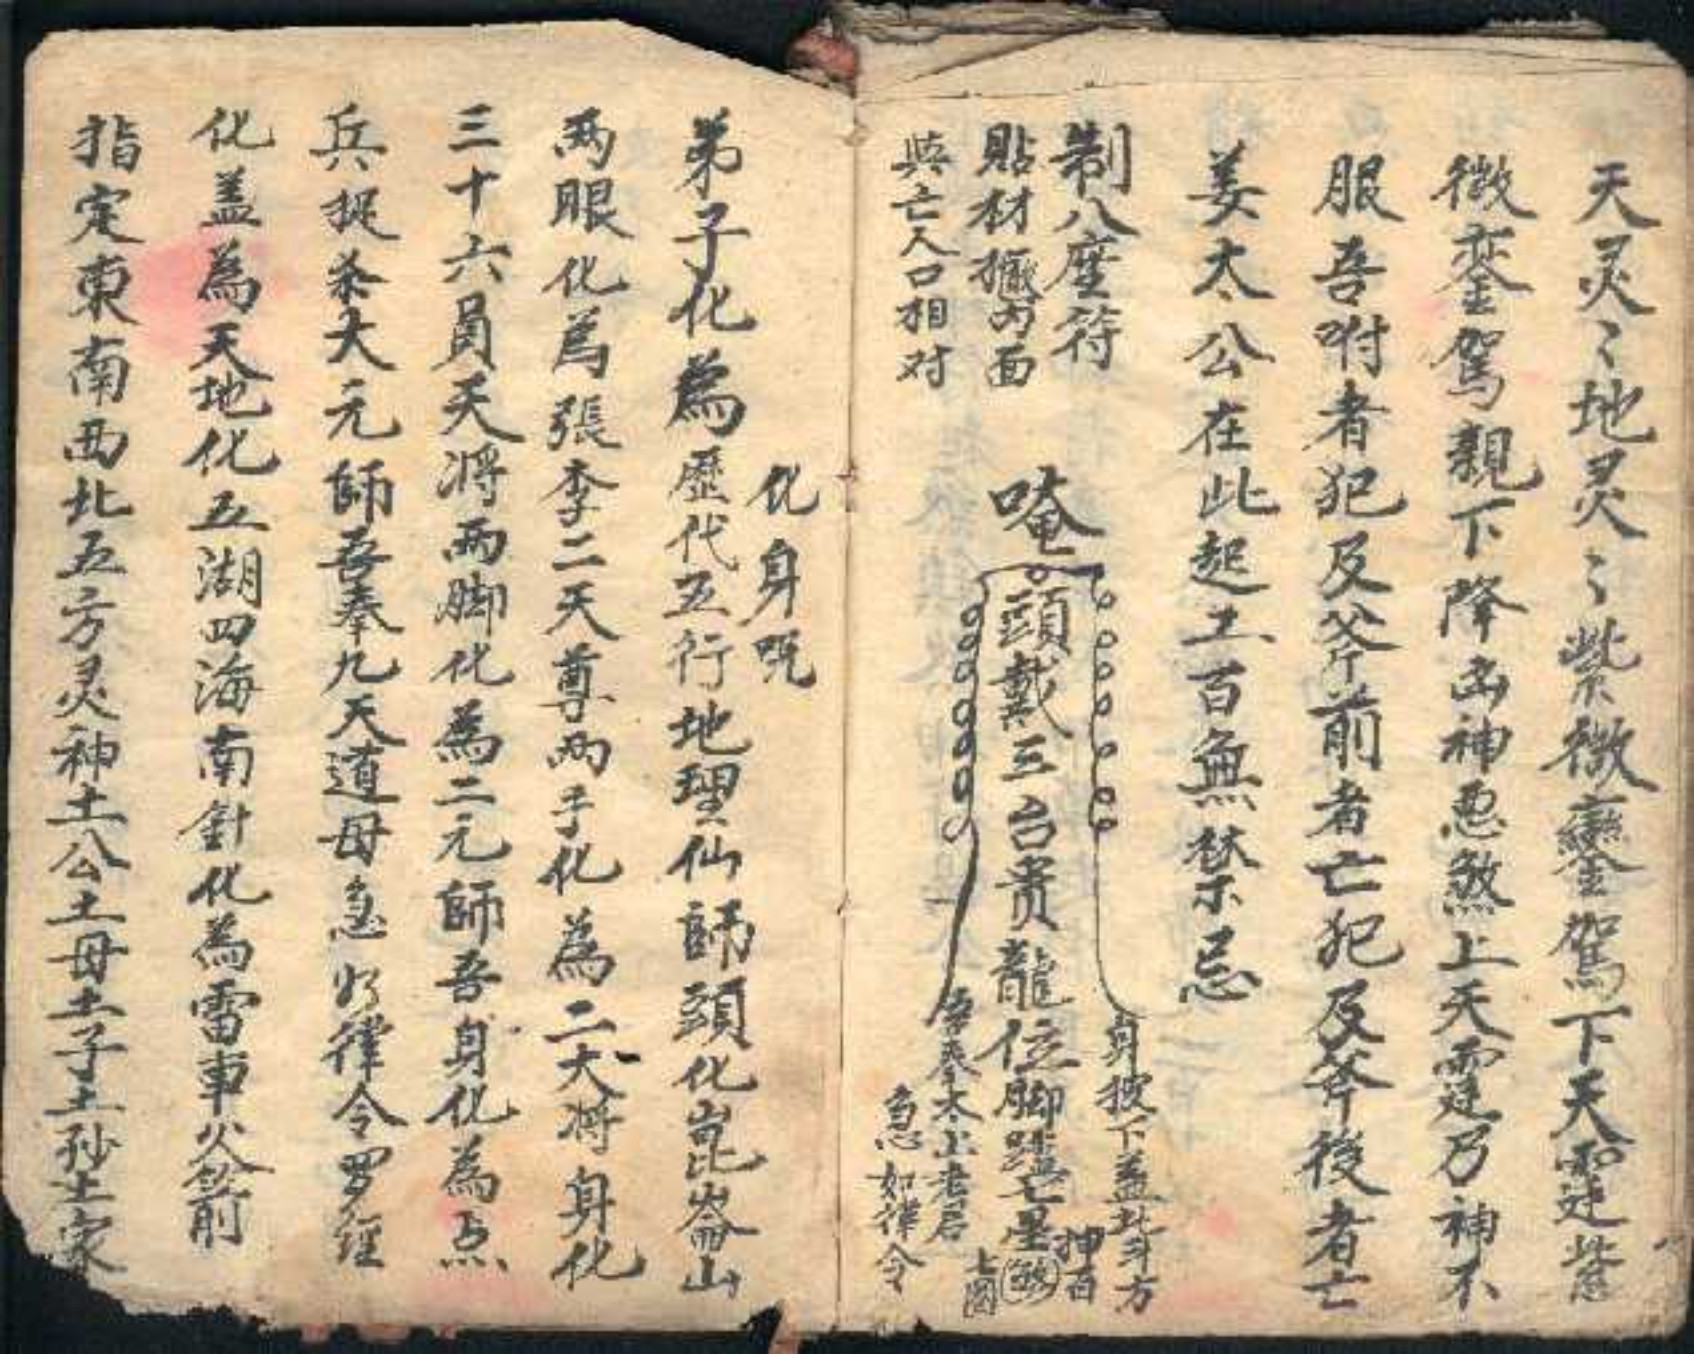 天灵〻地灵〻紫微鑾駕下天霆紫
微鑾駕親下降凶神恶煞上天霆乃神不
服吾咐者犯及斧前者亡犯及斧後者亡
姜太公在此起工百無禁忌
制八座符
貼材摳内面
與亡人口相对
唵
頭戴三台貴龍位脚踏七星
身披下蓋北斗方
押百
煞
吾奉太上老君
急如律令
七圈
化身呪
弟子化為歷代五行地理仙師頭化崑崙山
两眼化為張李二天尊两手化為二大将身化
三十六員天将两脚化為二元師吾身化為点
兵捉煞大元師吾奉九天道母急如律令罗経
化盖為天地化五湖四海南針化為雷車火忿前
指定東南西北五方灵神土公土母土子土孙土家